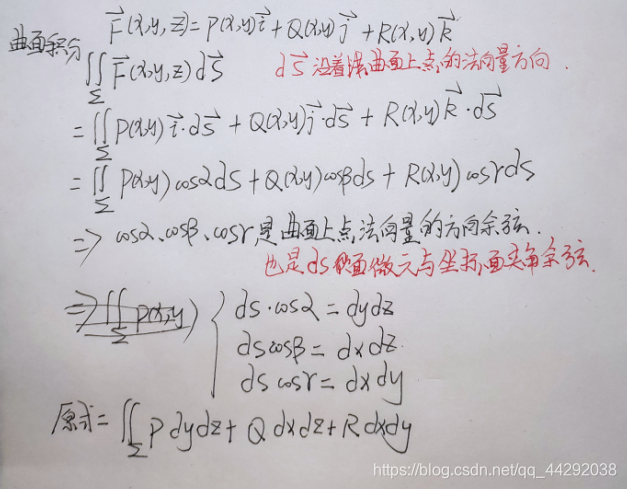 F⃗(x,y,z)=P(x,y)i⃗+Q(x,y)j⃗+R(x,y)k⃗
曲面积分
∬_Σ F⃗(x,y,z)dS⃗ dS⃗沿着该曲面上点的法向量方向.
=∬_Σ P(x,y)i⃗·dS⃗+Q(x,y)j⃗·dS⃗+R(x,y)k⃗·dS⃗
=∬_Σ P(x,y)cosαds+Q(x,y)cosβds+R(x,y)cosγds
=> cosα、cosβ、cosγ,是曲面上点法向量的方向余弦.
也是ds 面微元与坐标面夹角余弦.
=>∬_Σ P(x,y) { ds·cosα=dydz
dscosβ=dxdz.
dscosγ=dxdy
原式=∬_Σ Pdydz+Qdxdz+Rdxdy
https://blog.csdn.net/qq_44292038